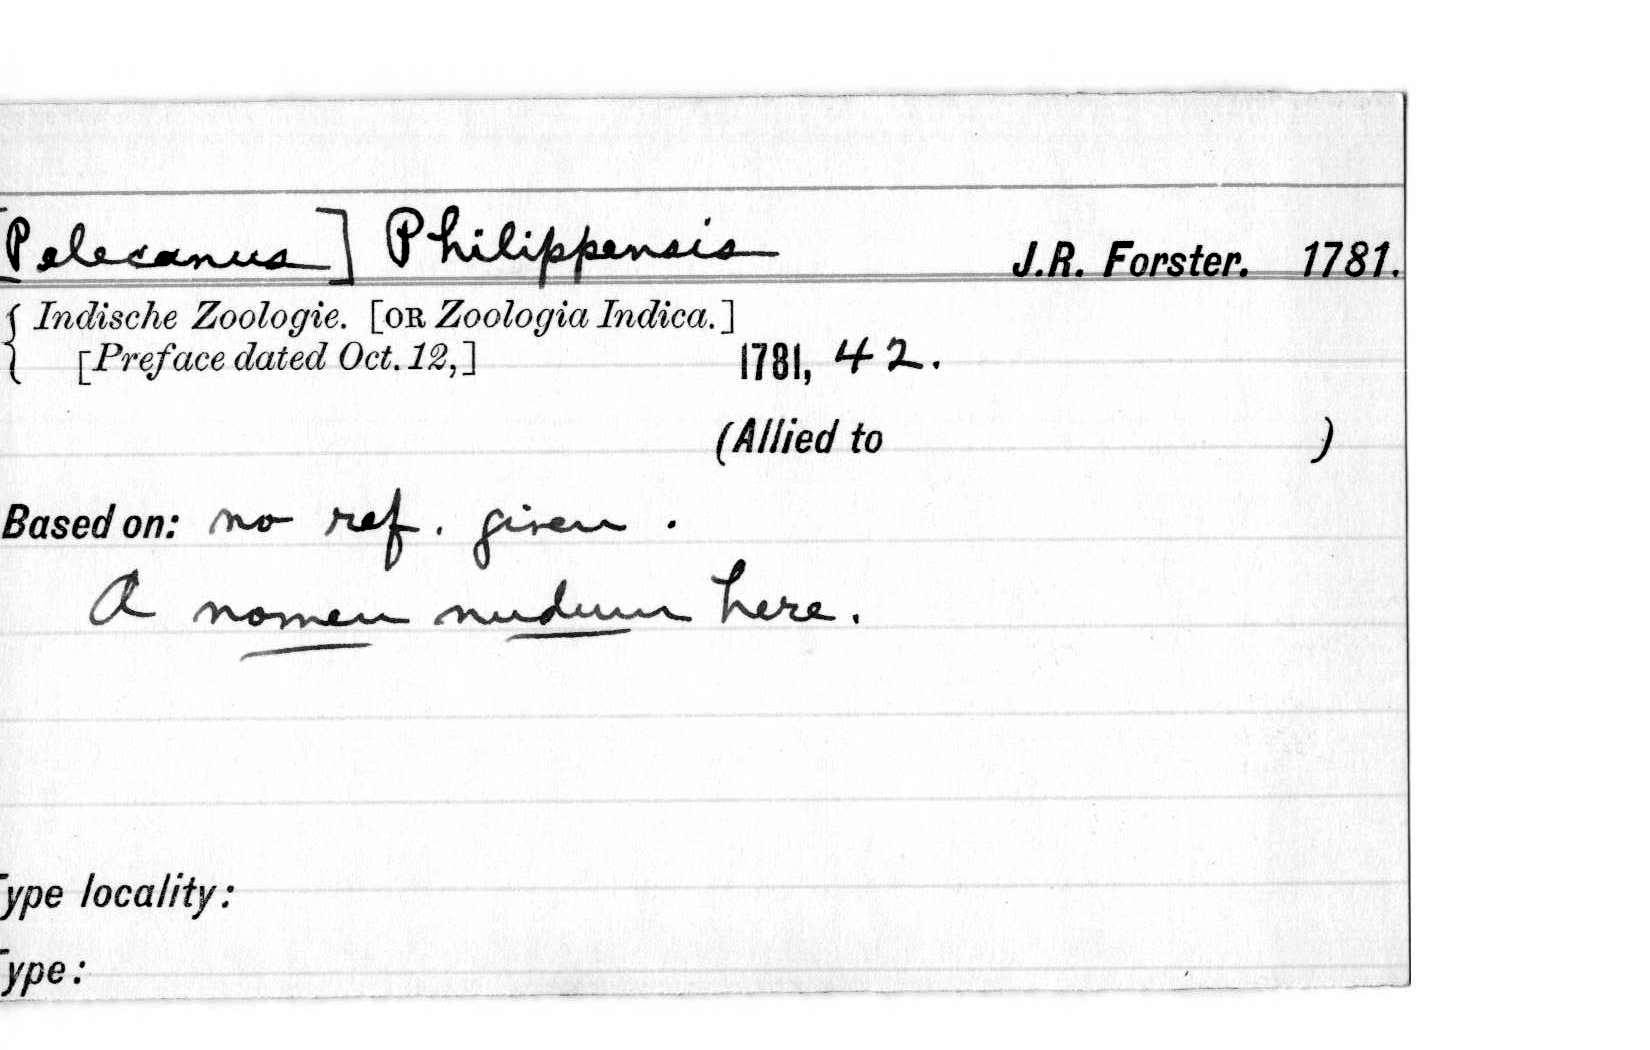 [Pelecanus] Philippensis J.R. Forster. 1781.
{ Indische Zoologie. [OR Zoologia Indica.]
[Preface dated Oct. 12,] 1781, 42.
(Allied to )
Based on: no ref. given.
A nomen nudum here.
Type locality:
Type: